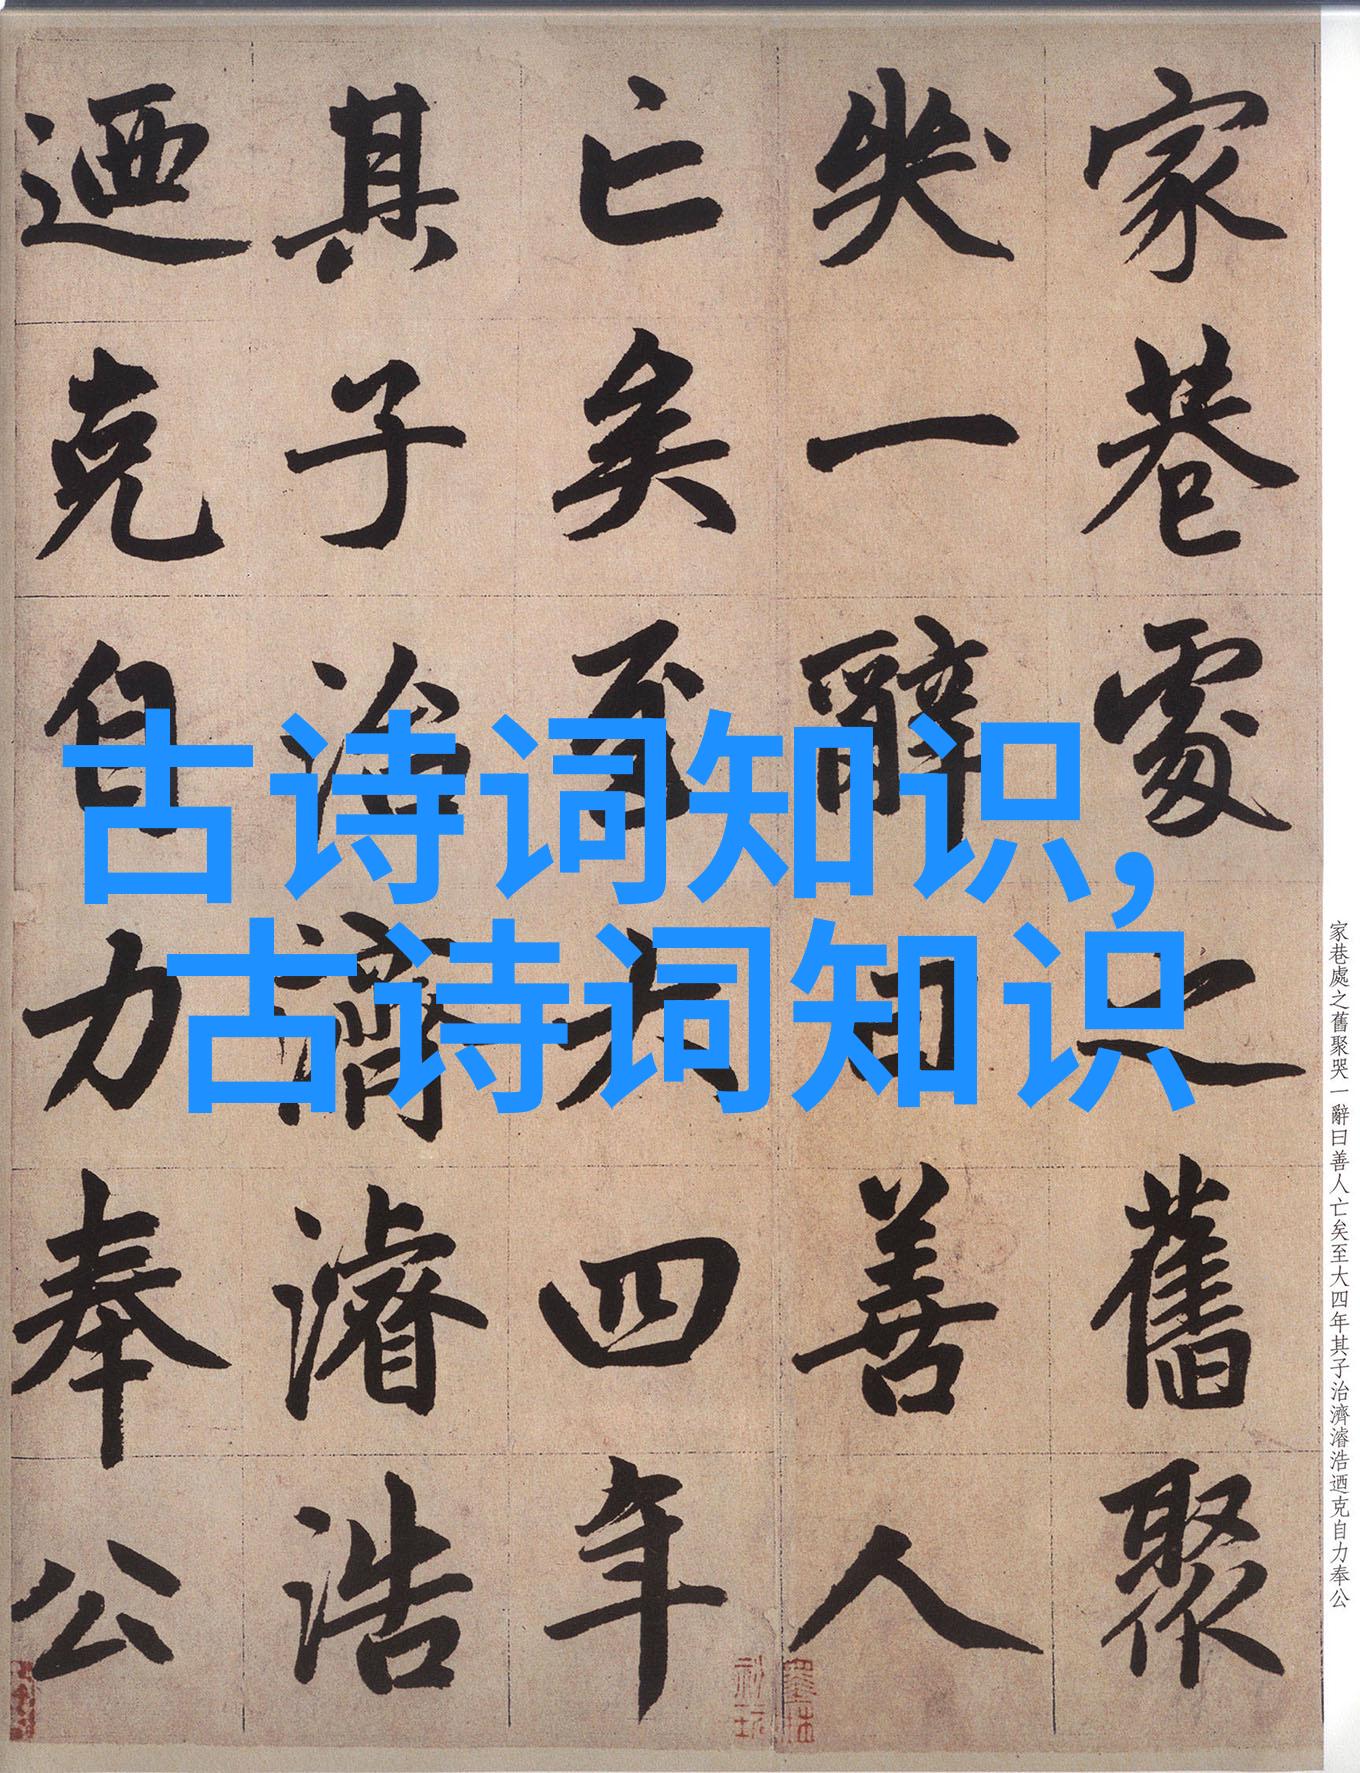 家巷處之舊聚
哭一辭曰善人
亡矣至大四年
其子治濟濬浩
迺克自力奉公
古诗词知识,
古诗词知识
家巷處之舊聚哭一辭曰善人亡矣至大四年其子治濟濬浩迺克自力奉公